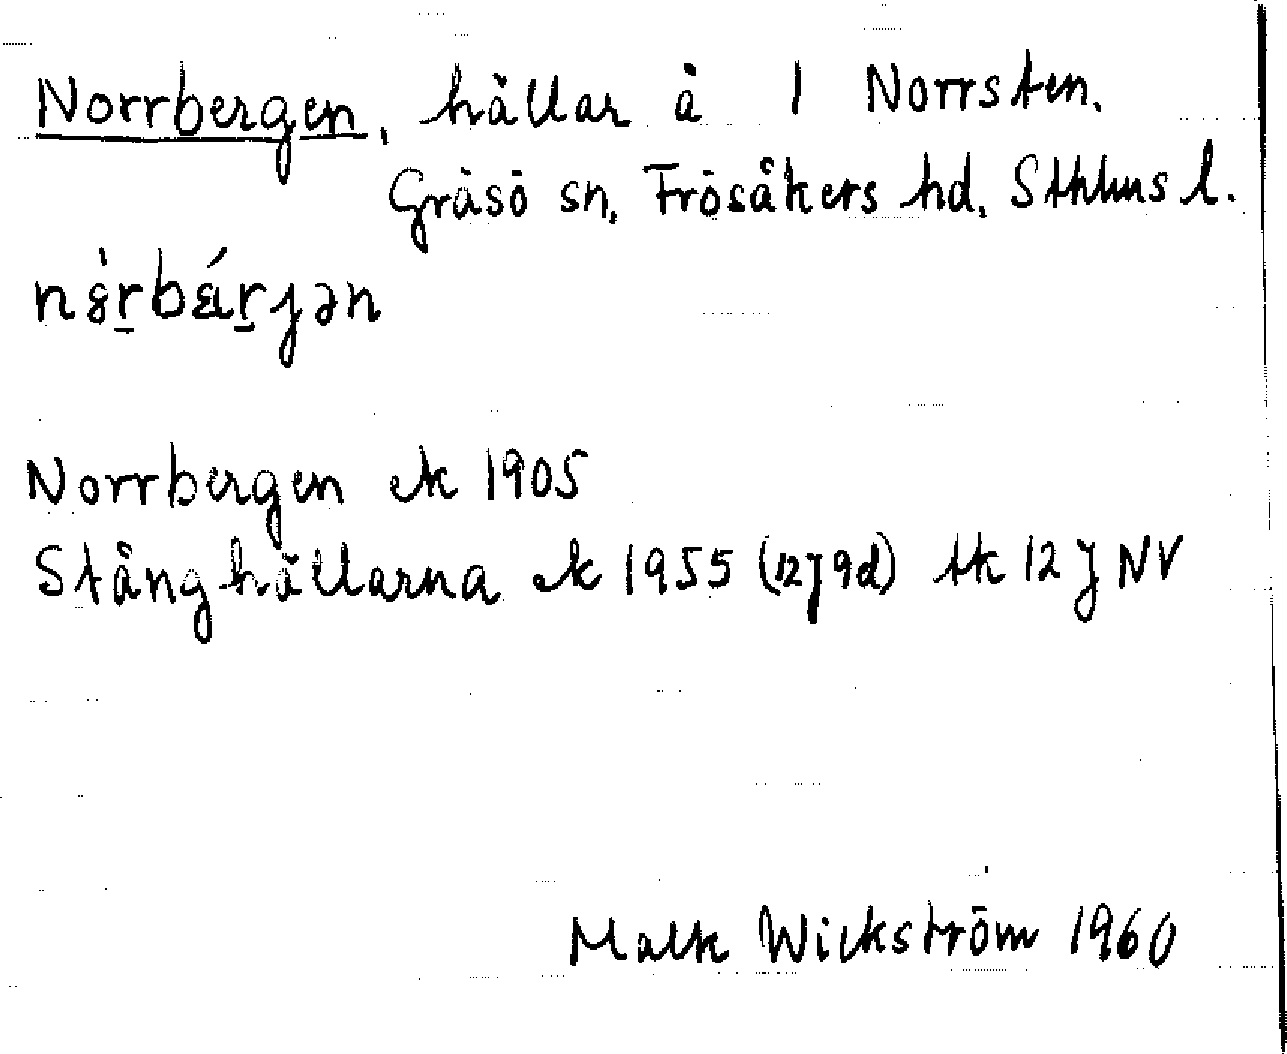 Norrbergen, hällar å 1 Norrsten.
Gräsö sn, Frösåkers hd, Sthlms l.
Norrbergen ek 1905
Stånghällarna ek 1955 (12J9d) tk 12 J NV
Malk Wickström 1960